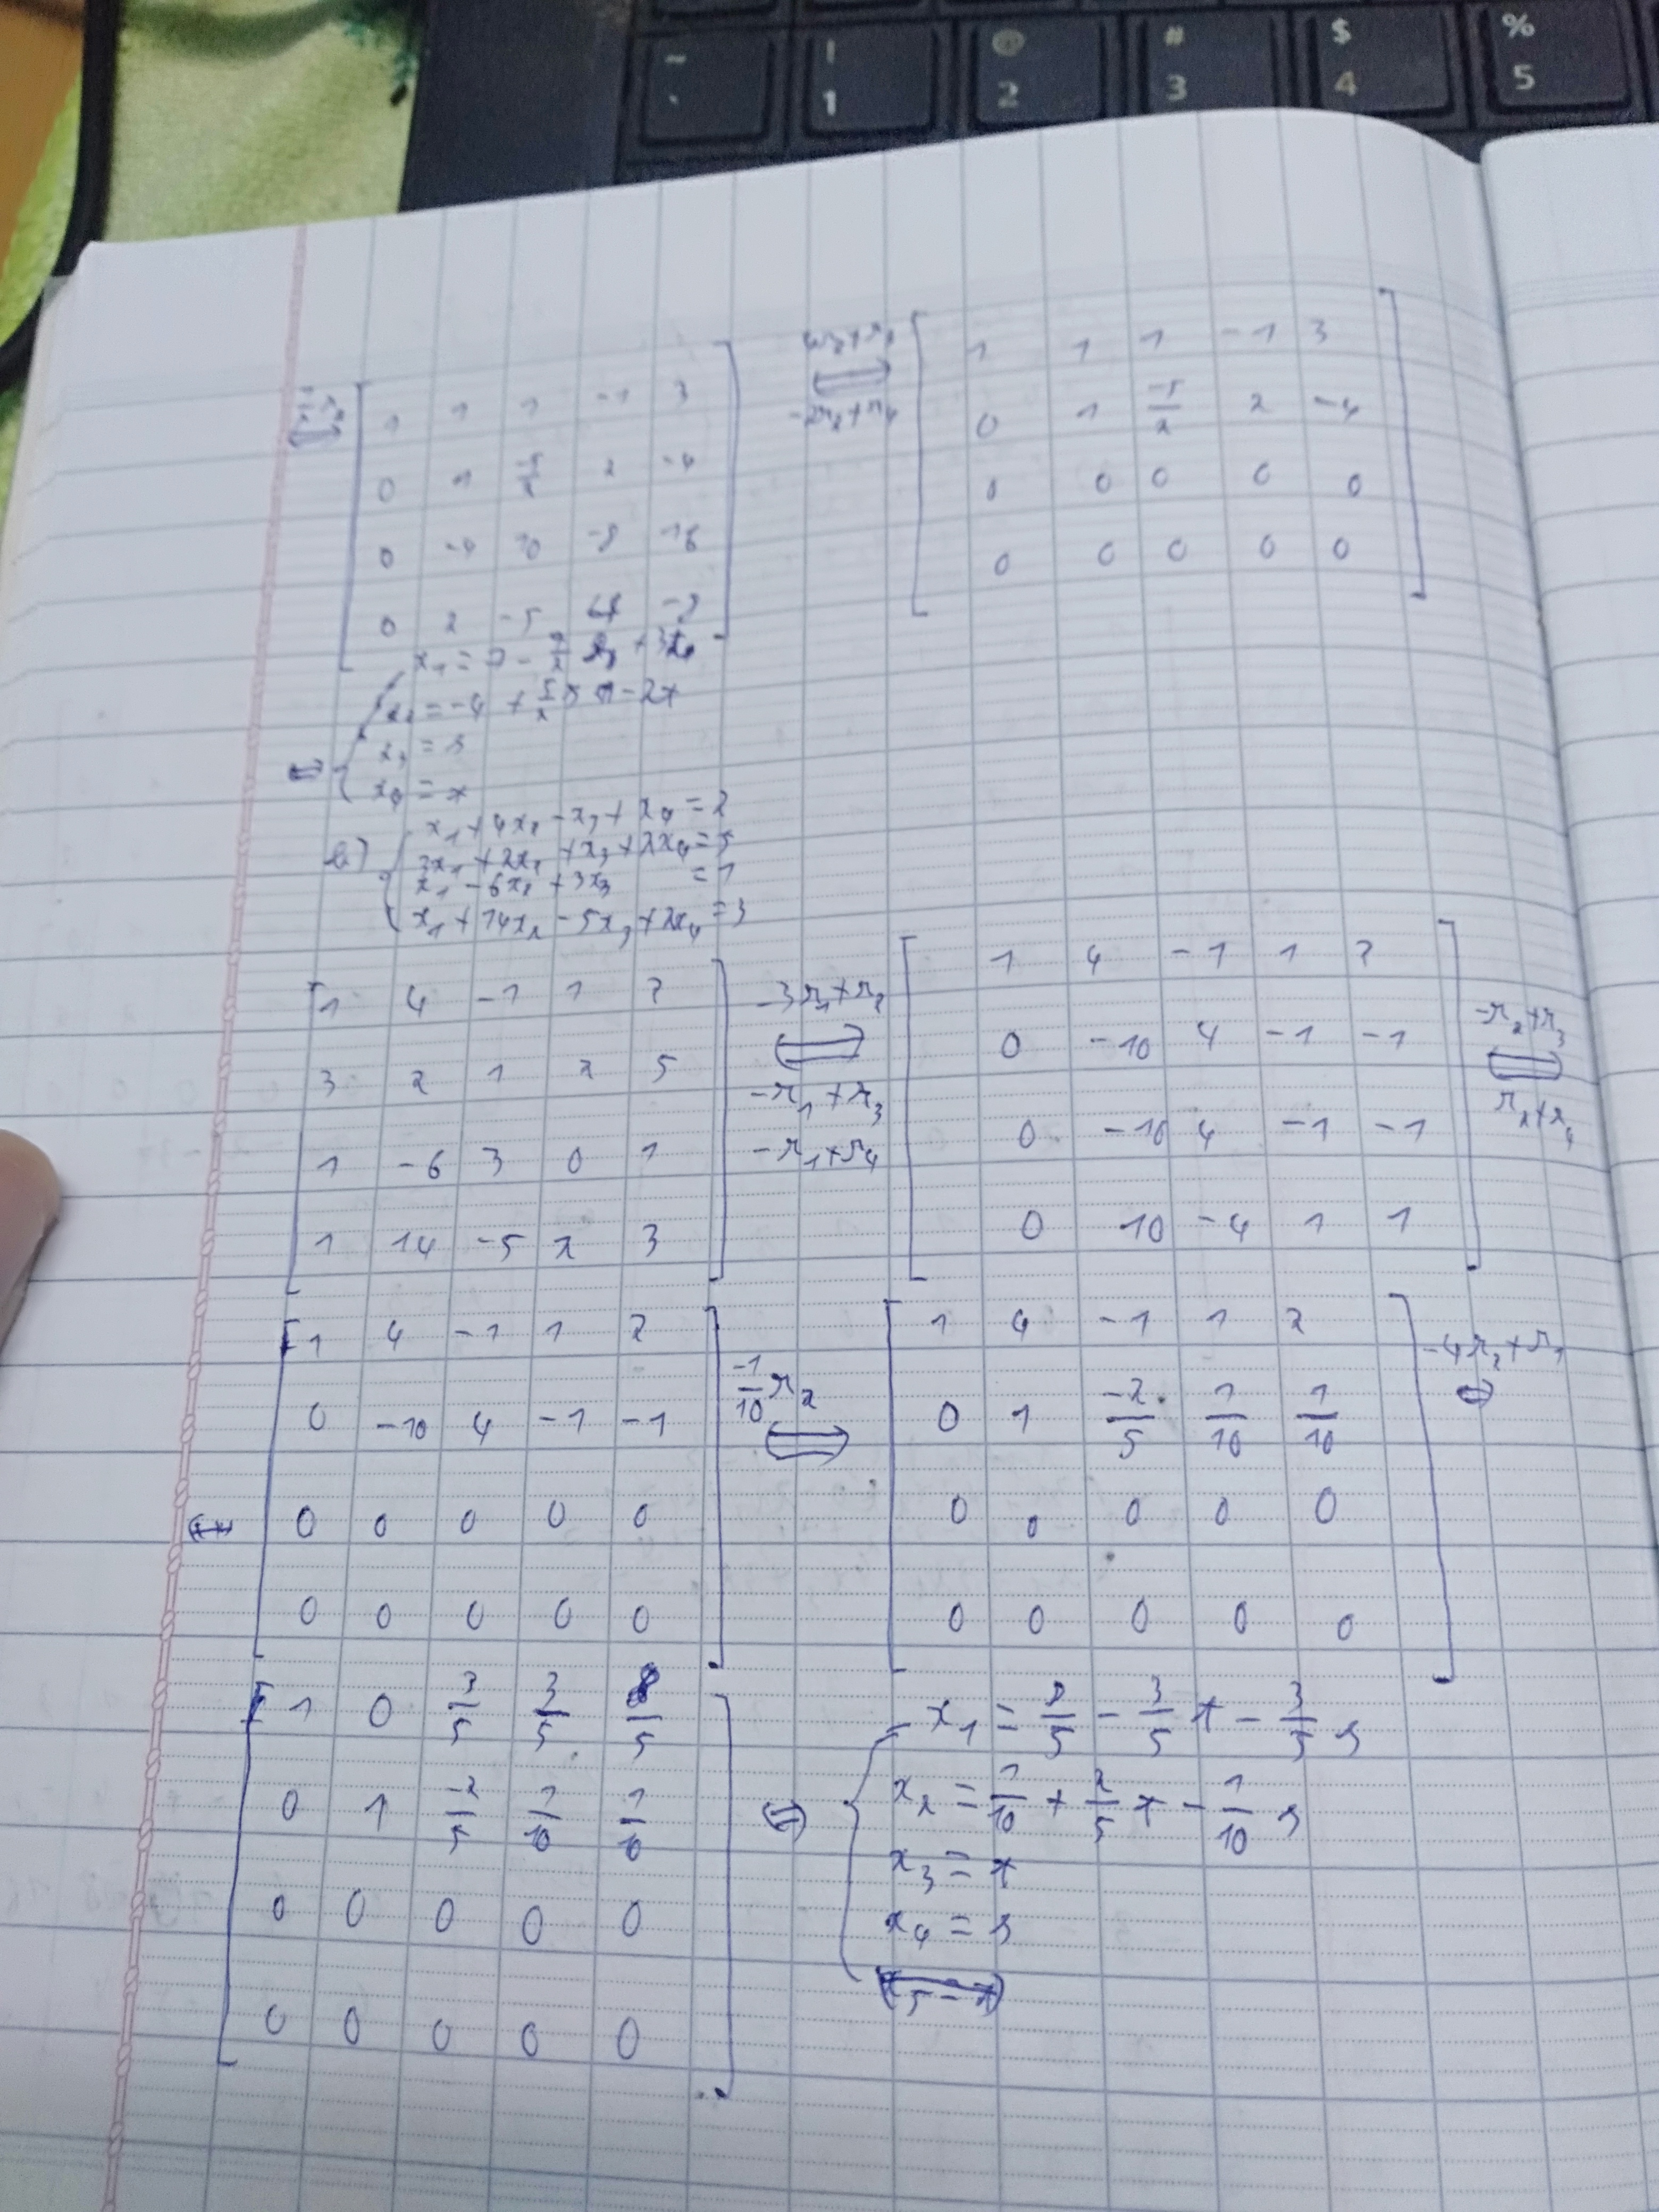 ~ ` ! 1 @ 2 # 3 $ 4 % 5
1 1 1 -1 3
0 1 -5/2 2 -4
0 -4 10 -8 16
0 2 -5 4 -8
4r₂+r₃
⟺
-2r₂+r₄
1 1 1 -1 3
0 1 -5/2 2 -4
0 0 0 0 0
0 0 0 0 0
x₁ = 7 - 7/2 s + 3t
x₂ = -4 + 5/2 s - 2t
⇔ x₃ = s
x₄ = t
b) x₁ + 4x₂ - x₃ + x₄ = 2
3x₁ + 2x₂ + x₃ + 2x₄ = 5
x₁ - 6x₂ + 3x₃ = 1
x₁ + 14x₂ - 5x₃ + 2x₄ = 3
1 4 -1 1 2
3 2 1 2 5
1 -6 3 0 1
1 14 -5 2 3
-3r₁+r₂
⟺
-r₁+r₃
-r₁+r₄
1 4 -1 1 2
0 -10 4 -1 -1
0 -10 4 -1 -1
0 10 -4 1 1
-r₂+r₃
⟺
r₂+r₄
⟺
1 4 -1 1 2
0 -10 4 -1 -1
0 0 0 0 0
0 0 0 0 0
-1/10 r₂
⟺
1 4 -1 1 2
0 1 -2/5 1/10 1/10
0 0 0 0 0
0 0 0 0 0
-4r₂+r₁
⇔
1 0 3/5 3/5 8/5
0 1 -2/5 1/10 1/10
0 0 0 0 0
0 0 0 0 0
⇔
x₁ = 8/5 - 3/5 t - 3/5 s
x₂ = 1/10 + 2/5 t - 1/10 s
x₃ = t
x₄ = s